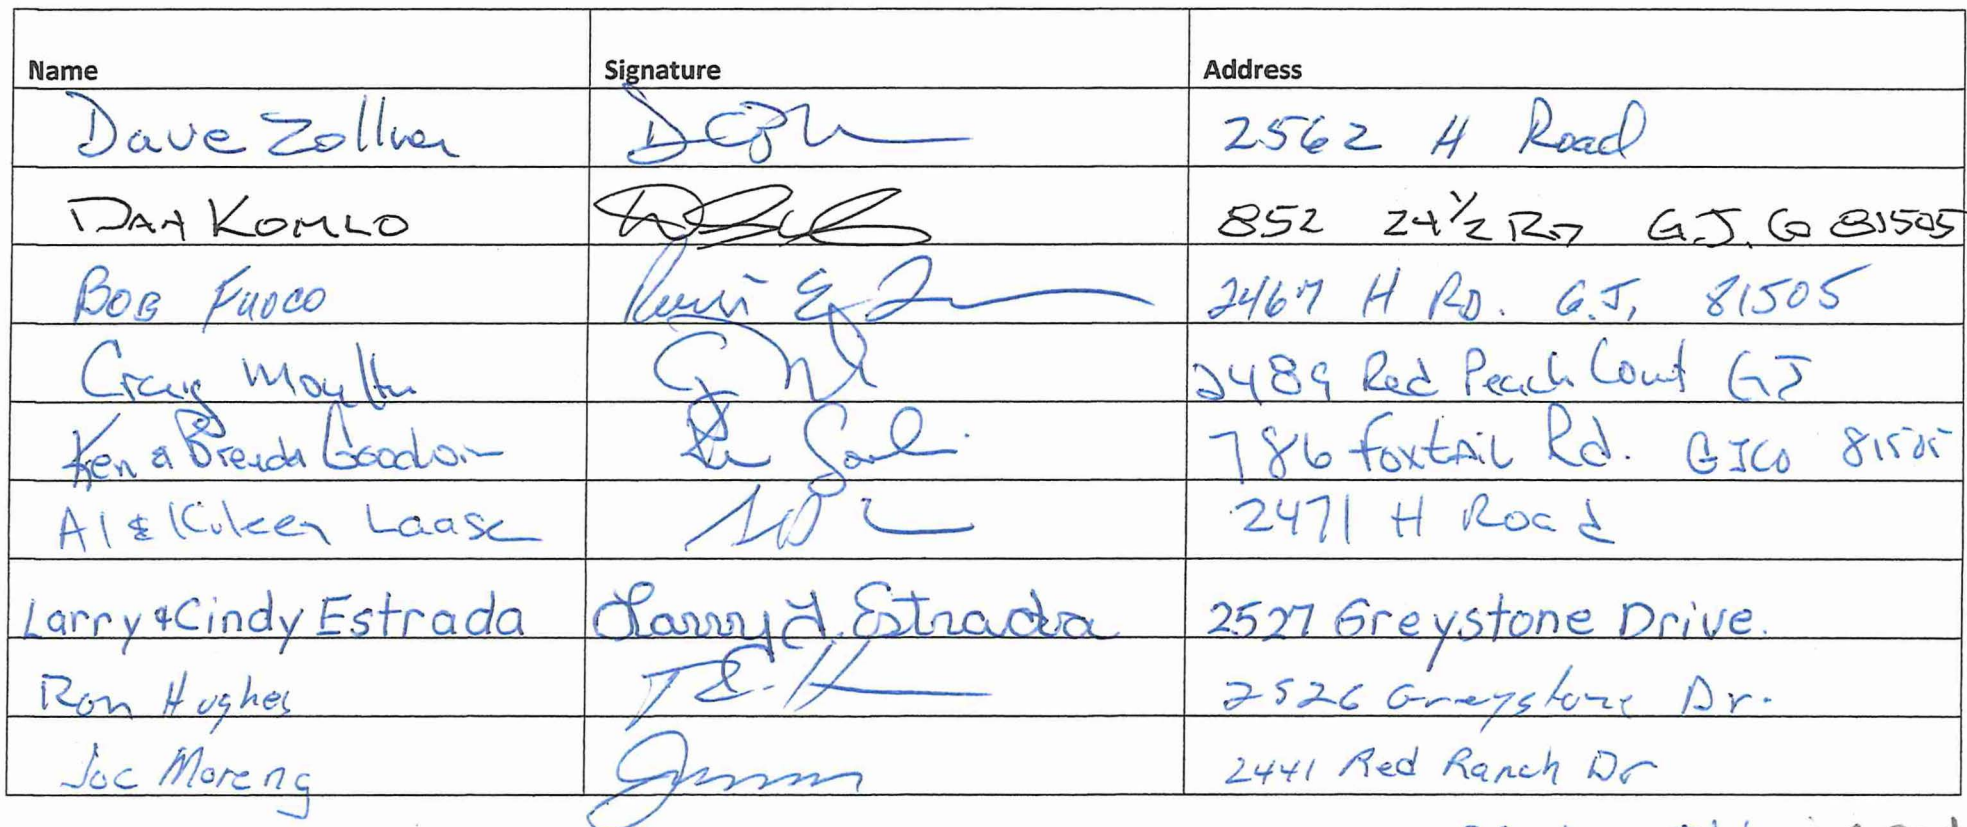 Name Signature Address
Dave Zollner 2562 H Road
DAN KOMLO 852 24½ RD G.J. CO 81505
BOB FUOCO 2467 H RD. G.J. 81505
Craig Moulton 2489 Red Peach Court GJ
Ken & Brenda Goodwin 786 Foxtail Rd. GJCO 81505
Al & Kileen Laase 2471 H Road
Larry & Cindy Estrada Larry J. Estrada 2527 Greystone Drive.
Ron Hughes 2526 Greystone Dr.
Joe Moreng 2441 Red Ranch Dr